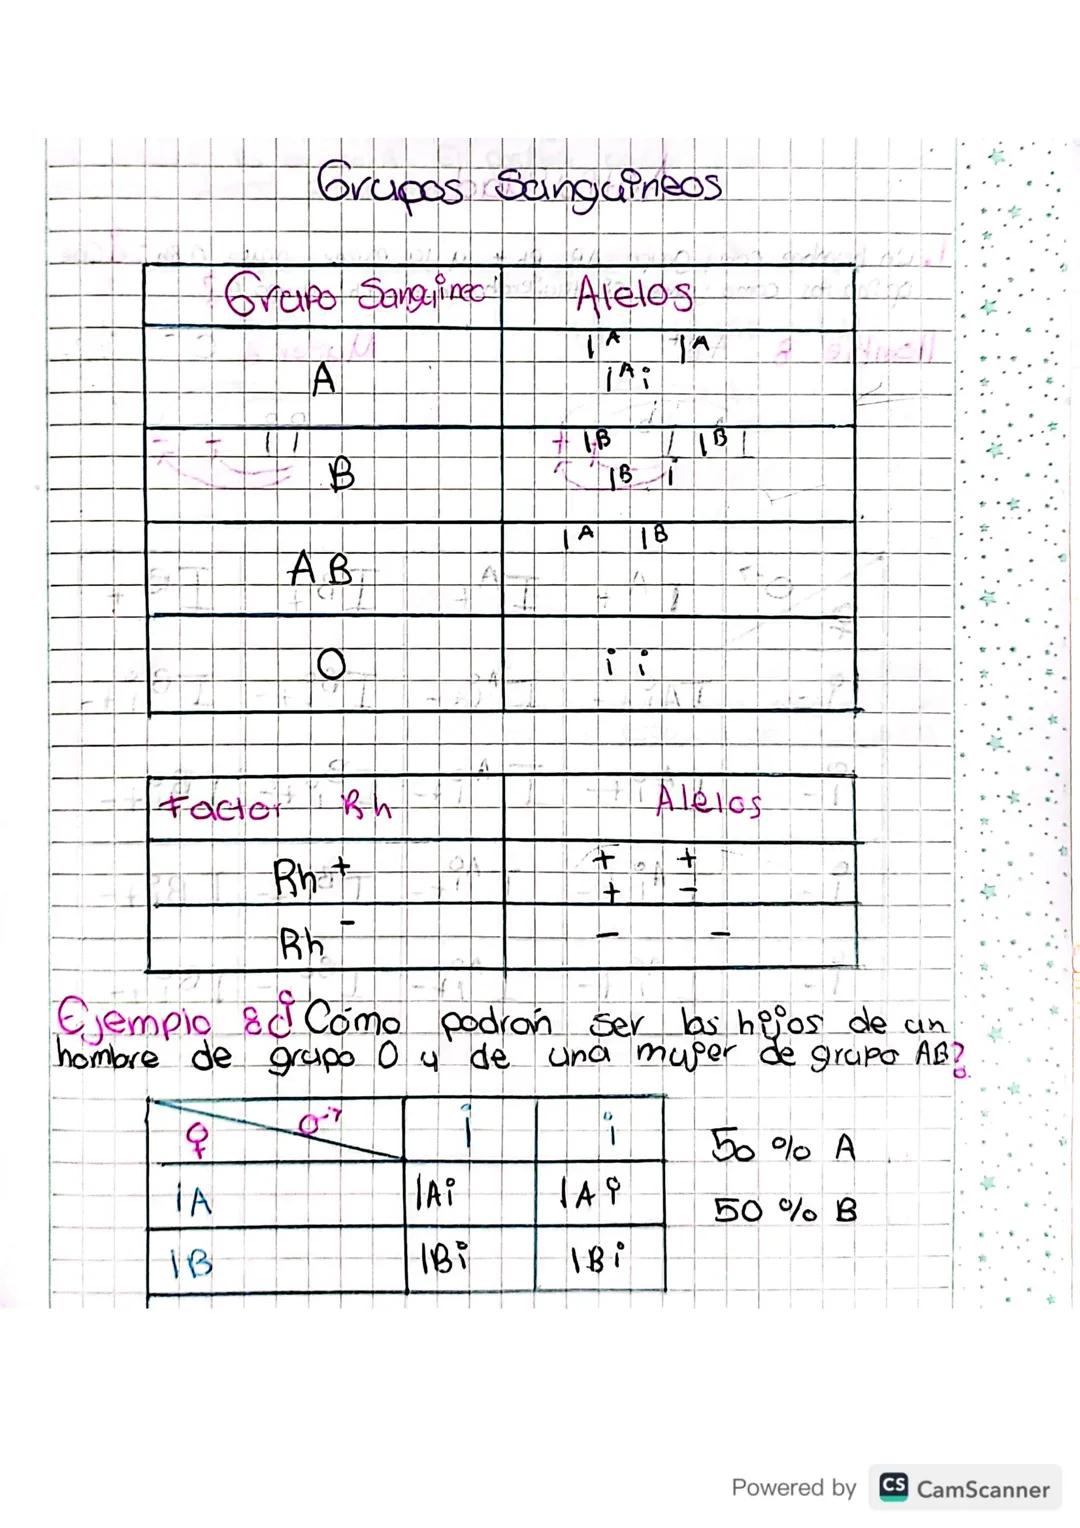 Grupos Sanguíneos
Grupo Sanguíneo Alelos
A I^A I^A
I^A i
B I^B I^B
I^B i
AB I^A I^B
O i i
Factor Rh Alelos
Rh + + +
+ -
Rh - - -
Ejemplo 8: ¿Cómo podrán ser los hijos de un
hombre de grupo O y de una mujer de grupo AB?
♀ ♂ i i
IA IAi IAi
IB IBi IBi
50 % A
50 % B
Powered by CS CamScanner